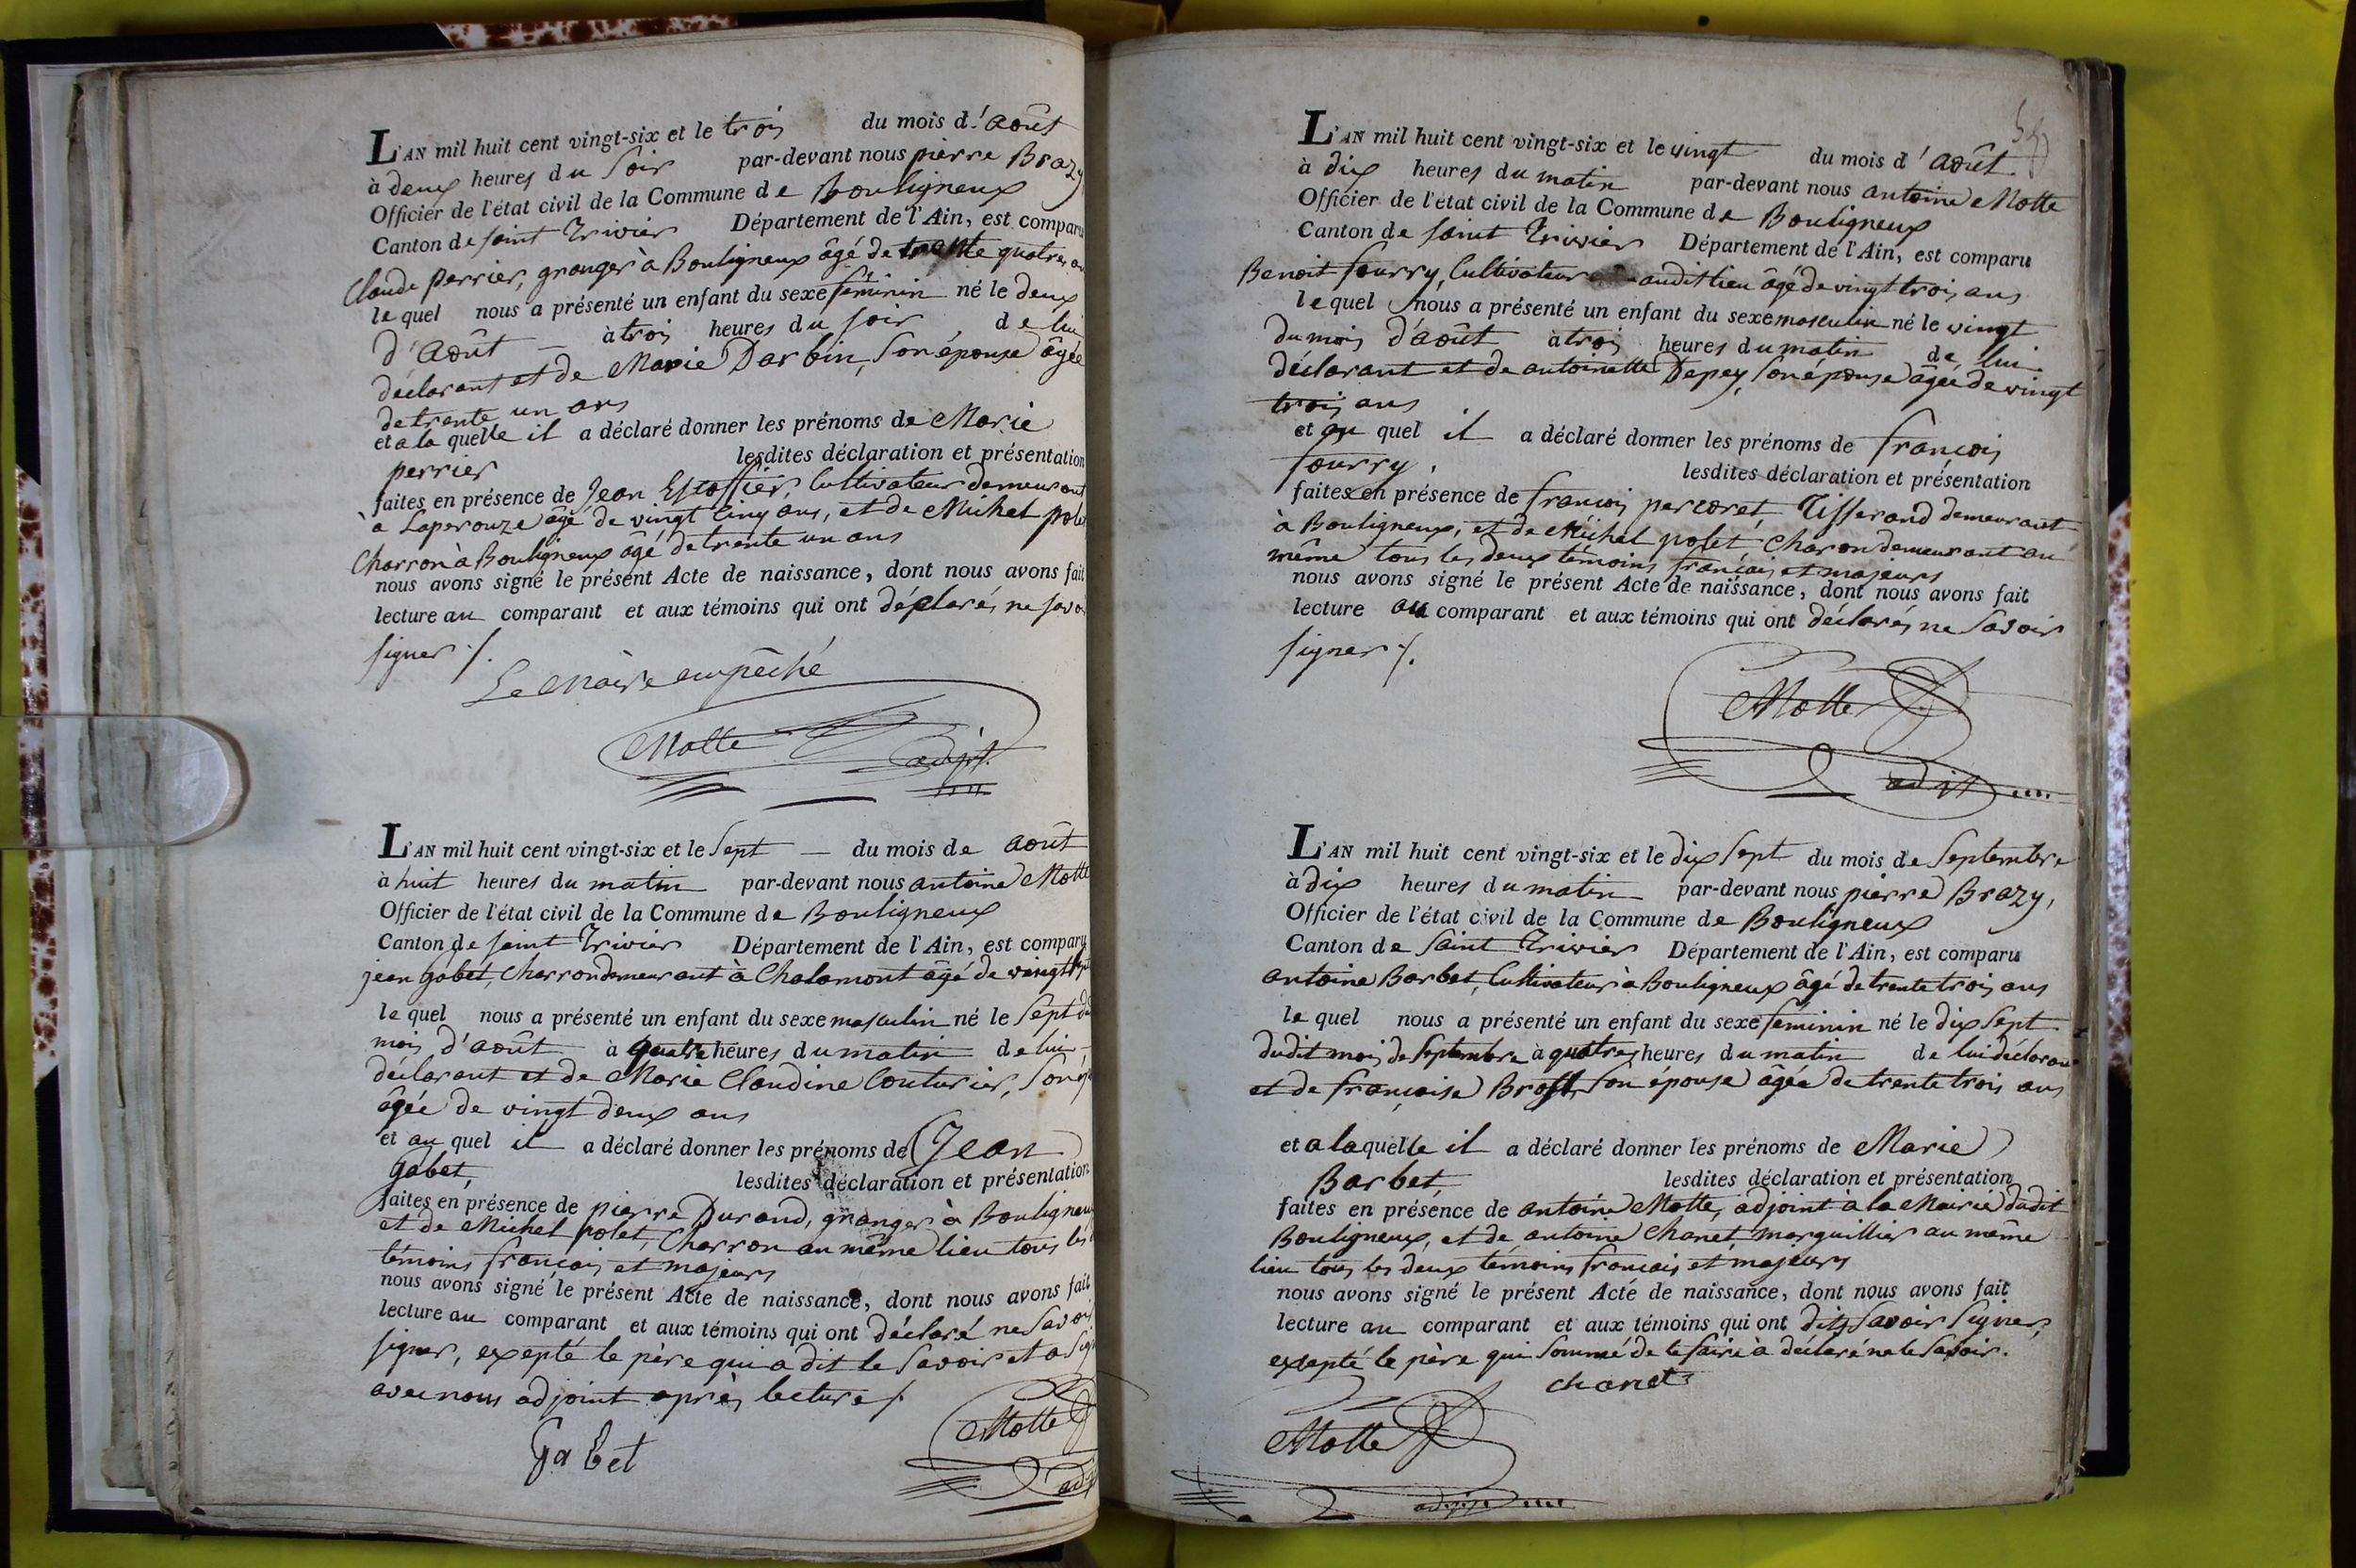 L'AN mil huit cent vingt-six et le trois du mois d'Août
à deux heures du Soir par-devant nous pierre Brazy
Officier de l'état civil de la Commune de Bouligneux
Canton de saint Trivier Département de l'Ain, est comparu
Claude perrier, granger à Bouligneux âgé de trente quatre
le quel nous a présenté un enfant du sexe féminin né le deux
d'Août à trois heures du soir de lui
déclarant et de Marie Darbin, son épouse âgée
de trente un ans
et a la quelle il a déclaré donner les prénoms de Marie
perrier lesdites déclaration et présentation
faites en présence de Jean Escoffier, Cultivateur demeurant
à Laperouze âgé de vingt cinq ans, et de Michel polet
Charron à Bouligneux âgé de trente un ans
nous avons signé le présent Acte de naissance, dont nous avons fait
lecture au comparant et aux témoins qui ont déclarés ne savo
signer ./.
Le Maire empêché
Motte adjt.
L'AN mil huit cent vingt-six et le Sept du mois de août
à huit heures du matin par-devant nous antoine Motte
Officier de l'état civil de la Commune de Bouligneux
Canton de saint Trivier Département de l'Ain, est comparu
jean Gabet, Charron demeurant à Chalamont âgé de vingt
le quel nous a présenté un enfant du sexe masculin né le Sept du
mois d'août à quatre heures du matin de lui
déclarant et de Marie Claudine Couturier, Son
âgée de vingt deux ans
et au quel il a déclaré donner les prénoms de Jean
Gabet, lesdites déclaration et présentation
faites en présence de pierre Durand, granger à Bouligneux
et de Michel polet, Charron au même lieu tous les
témoins français et majeurs
nous avons signé le présent Acte de naissance, dont nous avons fait
lecture au comparant et aux témoins qui ont déclaré ne Savoir
signer, expepté le père qui a dit le Savoir et a Sig
avec nous adjoint après lecture ./.
Gabet
Motte
L'AN mil huit cent vingt-six et le vingt du mois d'Août
à dix heures du matin par-devant nous antoine Motte
Officier de l'état civil de la Commune de Bouligneux
Canton de saint Trivier Département de l'Ain, est comparu
Benoit fourry, Cultivateur audit lieu âgé de vingt trois ans
le quel nous a présenté un enfant du sexe masculin né le vingt
du mois d'août à trois heures du matin de lui
déclarant et de antoinette Depey, Son épouse âgée de vingt
trois ans
et au quel il a déclaré donner les prénoms de françois
fourry, lesdites déclaration et présentation
faites en présence de françois percoret, Tisserand demeurant
à Bouligneux, et de Michel polet Charon demeurant au
même tous les deux témoins français et majeurs
nous avons signé le présent Acte de naissance, dont nous avons fait
lecture au comparant et aux témoins qui ont déclarés ne Savoir
signer ./.
Motte
adjt
L'AN mil huit cent vingt-six et le dix Sept du mois de Septembre
à dix heures du matin par-devant nous pierre Brazy,
Officier de l'état civil de la Commune de Bouligneux
Canton de Saint Trivier Département de l'Ain, est comparu
antoine Barbet, Cultivateur à Bouligneux âgé de trente trois ans
le quel nous a présenté un enfant du sexe féminin né le dix Sept
dudit mois de Septembre à quatre heures du matin de lui déclarant
et de françoise Brost, Son épouse âgée de trente trois ans
et a la quelle il a déclaré donner les prénoms de Marie
Barbet, lesdites déclaration et présentation
faites en présence de antoine Motte, adjoint à la Mairie dudit
Bouligneux, et de antoine Chanet marguillier au même
lieu tous les deux témoins français et majeurs
nous avons signé le présent Acte de naissance, dont nous avons fait
lecture au comparant et aux témoins qui ont dits Savoir Signer,
expepté le père qui Sommé de le faire à déclaré ne le Savoir.
chanet
Motte